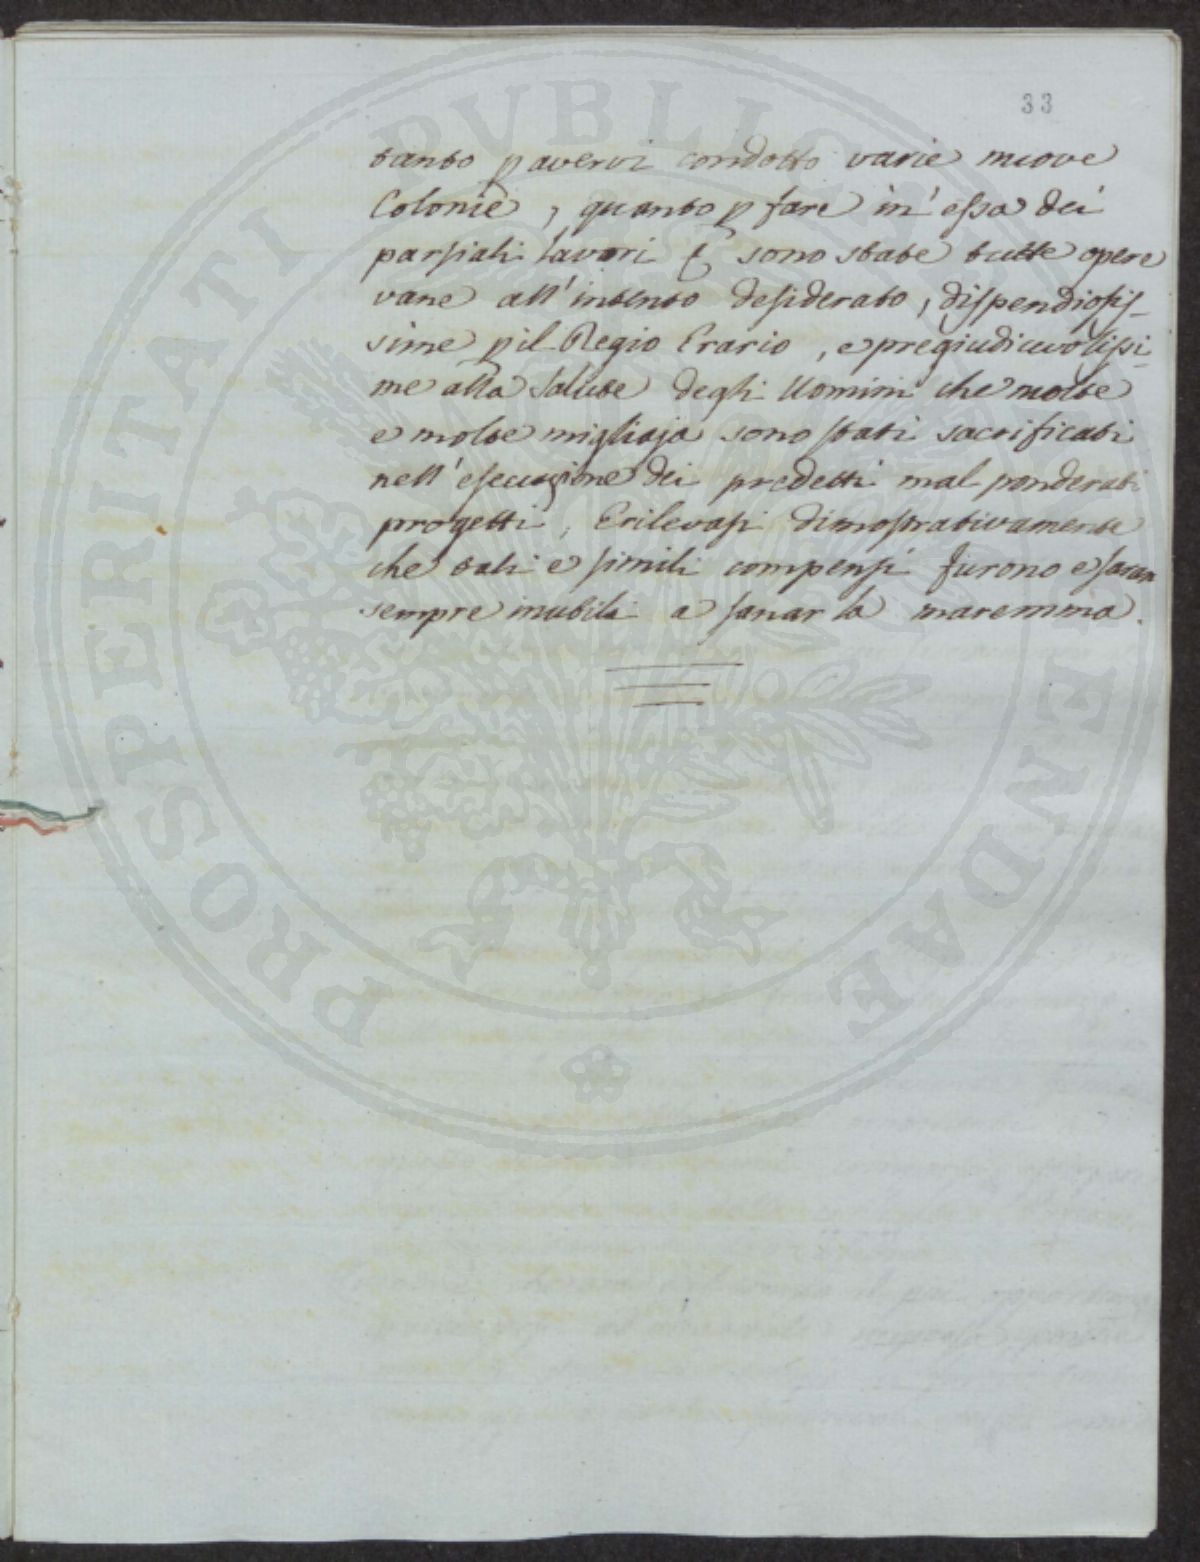 33
tanto p avervi condotto varie nuove
Colonie, quanto p fare in'essa dei
parsiali lavori sono state tutte opere
vane all'intento desiderato, dispendiosis-
sime p il Regio Erario, e pregiudicievolissi-
me alla salute degli Uomini che molte
e molte migliaja sono stati sacrificati
nell'esecuzione dei predetti mal ponderati
progetti, Erilevasi dimostrativamente
che tali e simili compensi furono e saran
sempre inutili a sanar la maremma.
PROSPERITATI PUBLICAE AUGENDAE